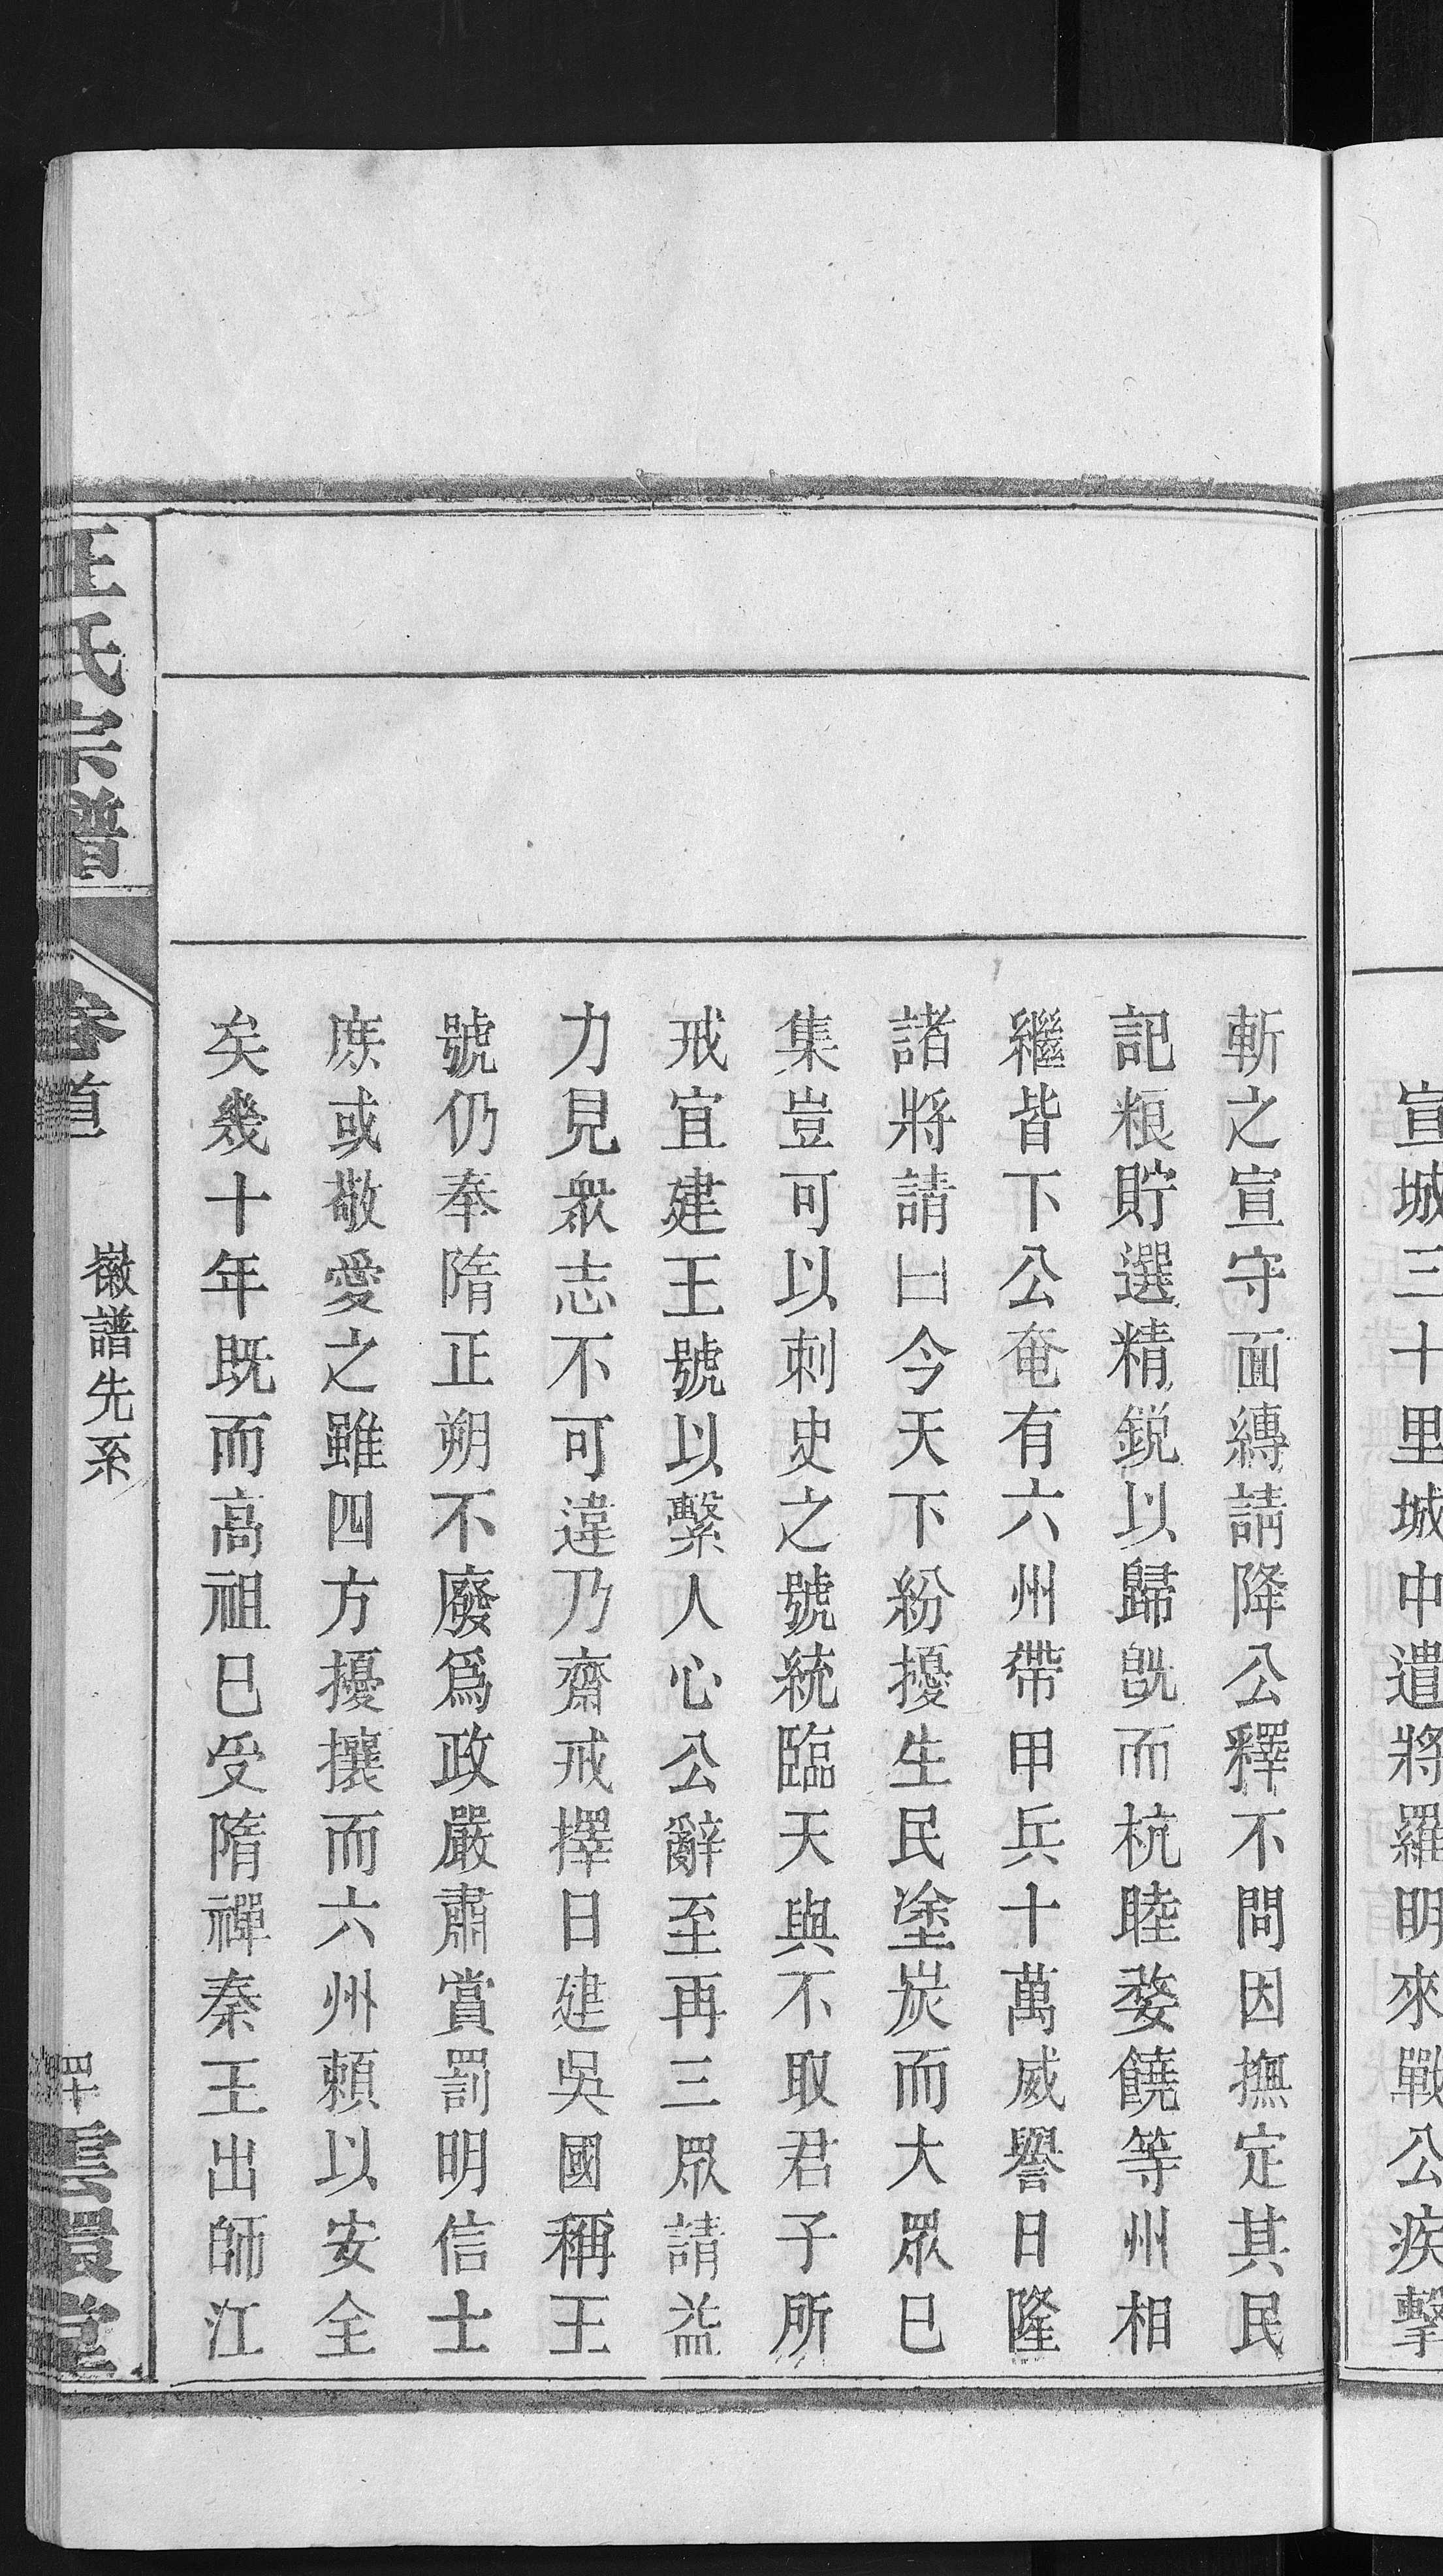 宣城三十里城中遣將羅明來戰公疾擊
斬之宣守面縛請降公釋不問因撫定其民
記粮貯選精鋭以歸旣而杭睦婺饒等州相
繼皆下公奄有六州帶甲兵十萬威譽日隆
諸將請曰今天下紛擾生民塗炭而大眾已
集豈可以刺史之號統臨天與不取君子所
戒宜建王號以繫人心公辭至再三眾請益
力見衆志不可違乃齋戒擇日建吳國稱王
號仍奉隋正朔不廢爲政嚴肅賞罰明信士
庶或敬愛之雖四方擾攘而六州頼以安全
矣幾十年既而高祖已受隋禪秦王出師江
氏宗譜
卷首
徽譜先系
四十
雲環堂